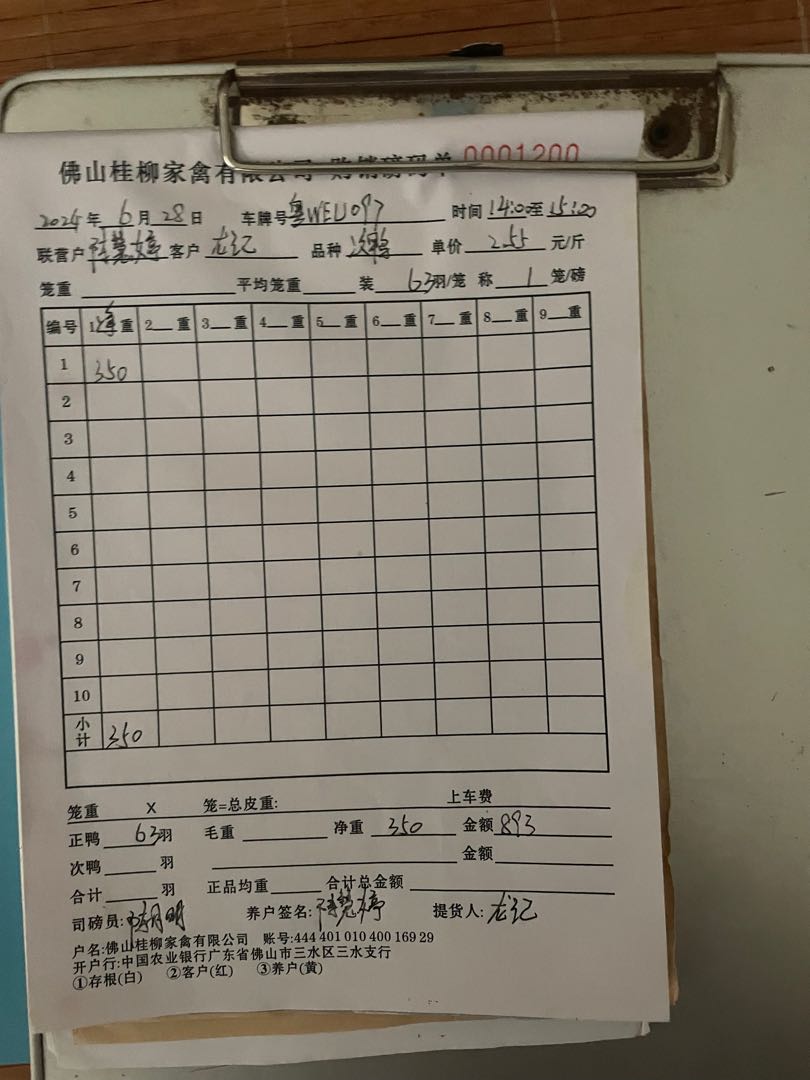 佛山桂柳家禽有限公司 购销磅码单 0001200
2024年 6月 28日 车牌号 粤WEU097 时间 14:00至15:20
联营户 陈慧婷 客户 龙记 品种 次鸭 单价 2.55 元/斤
笼重 平均笼重 装 63羽/笼 称 1 笼/磅
编号 1净重 2 重 3 重 4 重 5 重 6 重 7 重 8 重 9 重
1 350
2
3
4
5
6
7
8
9
10
小计 350
笼重 X 笼=总皮重: 上车费
正鸭 63羽 毛重 净重 350 金额 893
次鸭 羽 金额
合计 羽 正品均重 合计总金额
司磅员: 明 养户签名: 陈慧婷 提货人: 龙记
户名:佛山桂柳家禽有限公司 账号:444 401 010 400 169 29
开户行:中国农业银行广东省佛山市三水区三水支行
①存根(白) ②客户(红) ③养户(黄)